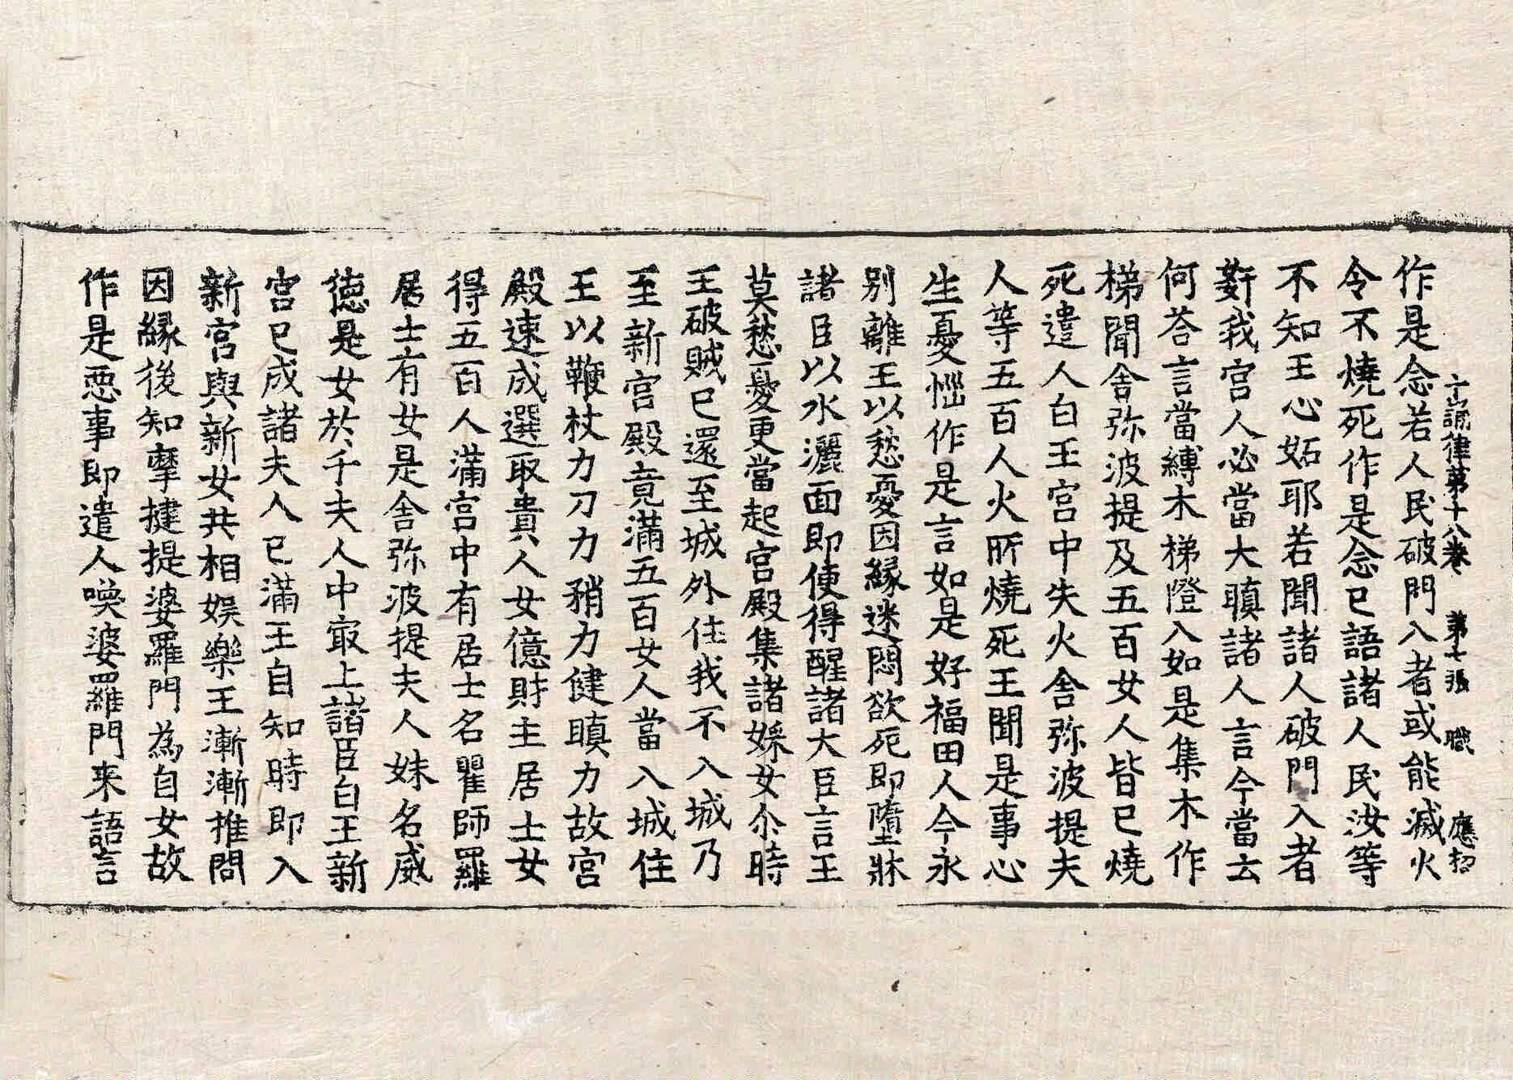 十誦律第十八卷 第七張 職 應招
作是念若人民破門入者或能滅火
令不燒死作是念已語諸人民汝等
不知王心妬耶若聞諸人破門入者
姧我宮人必當大瞋諸人言今當云
何荅言當縛木梯隥入如是集木作
梯聞舍弥波提及五百女人皆已燒
死遣人白王宮中失火舍弥波提夫
人等五百人火所燒死王聞是事心
生憂惱作是言如是好福田人今永
別離王以愁憂因緣迷悶欲死即墮牀
諸臣以水灑面即便得醒諸大臣言王
莫愁憂更當起宮殿集諸婇女尒時
王破賊已還至城外住我不入城乃
至新宮殿竟滿五百女人當入城住
王以鞭杖力刀力矟力健瞋力故宮
殿速成選取貴人女億財主居士女
得五百人滿宮中有居士名瞿師羅
居士有女是舍弥波提夫人妹名威
德是女於千夫人中㝡上諸臣白王新
宮已成諸夫人已滿王自知時即入
新宮與新女共相娛樂王漸漸推問
因緣後知摩揵提婆羅門為自女故
作是惡事即遣人喚婆羅門来語言